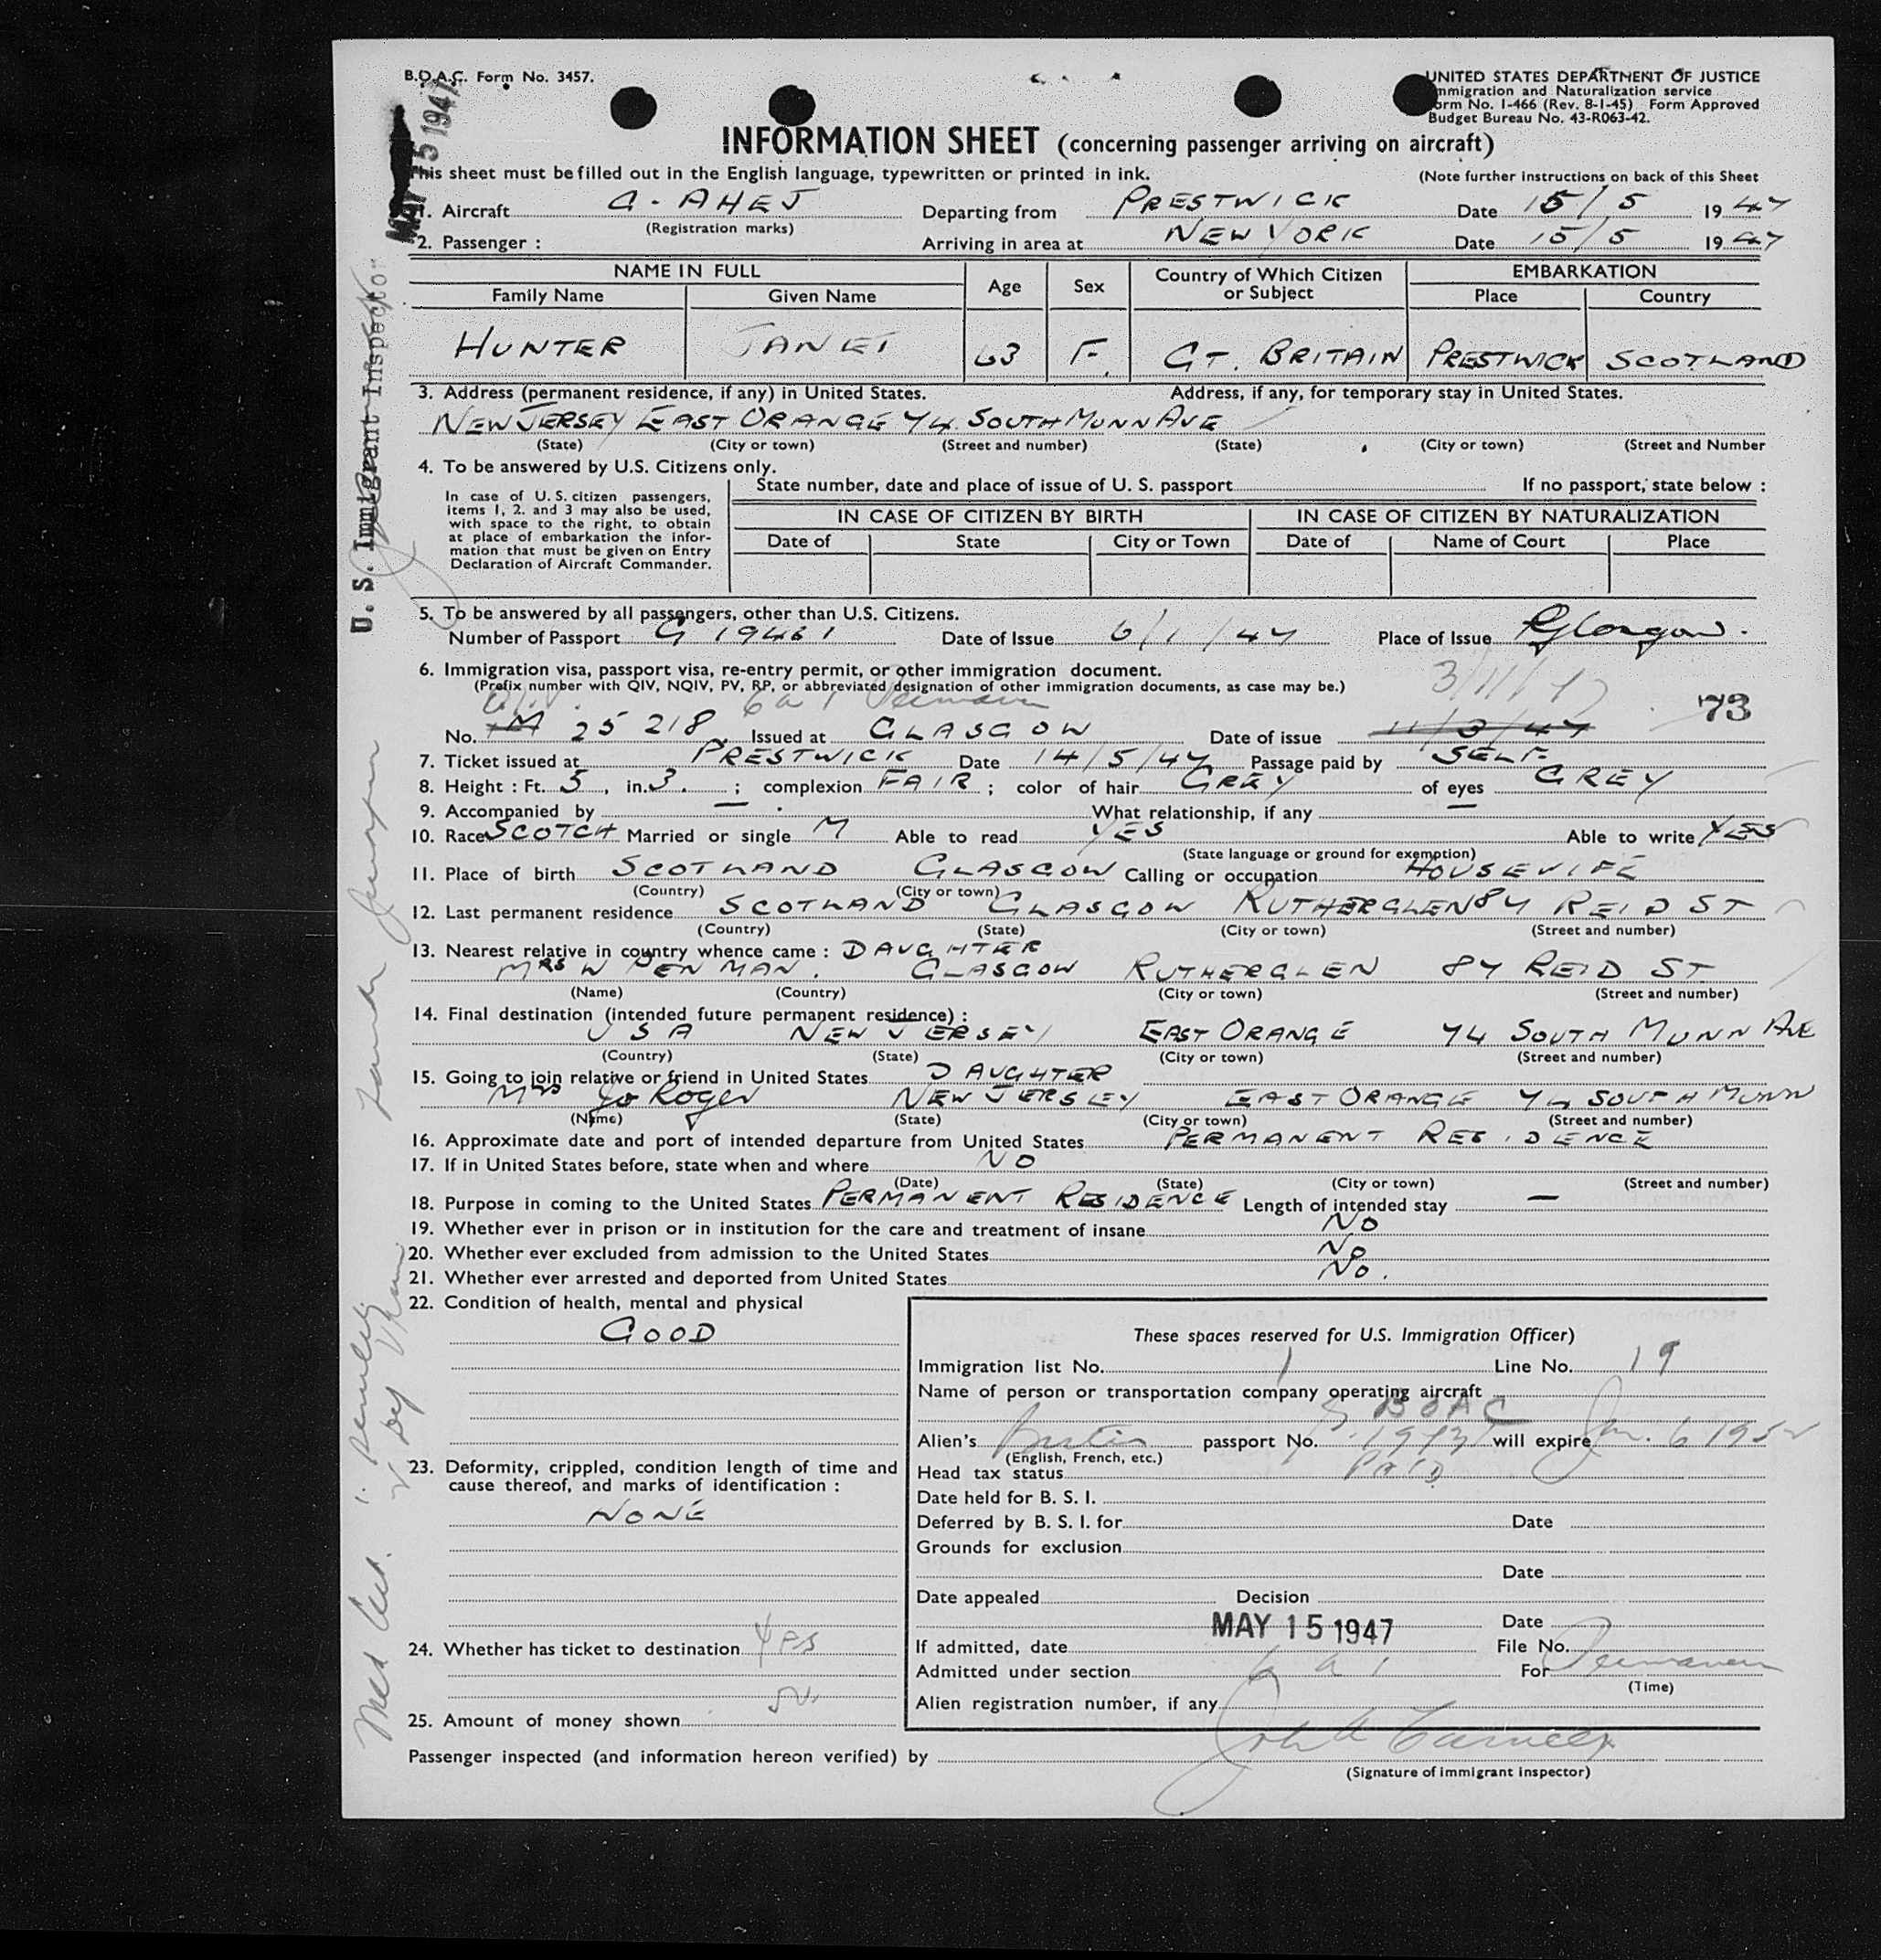 B.O.A.C. Form No. 3457.
UNITED STATES DEPARTMENT OF JUSTICE
Immigration and Naturalization service
Form No. I-466 (Rev. 8-1-45) Form Approved
Budget Bureau No. 43-R063-42.
INFORMATION SHEET (concerning passenger arriving on aircraft)
This sheet must be filled out in the English language, typewritten or printed in ink.
(Note further instructions on back of this Sheet
1. Aircraft G-AHEJ Departing from PRESTWICK Date 15/5 1947
(Registration marks)
2. Passenger : Arriving in area at NEW YORK Date 15/5 1947
NAME IN FULL Age Sex Country of Which Citizen or Subject EMBARKATION
Family Name Given Name Place Country
HUNTER JANET 63 F. GT. BRITAIN PRESTWICK SCOTLAND
3. Address (permanent residence, if any) in United States. Address, if any, for temporary stay in United States.
NEW JERSEY EAST ORANGE 74 SOUTH MUNN AVE
(State) (City or town) (Street and number) (State) (City or town) (Street and Number
4. To be answered by U.S. Citizens only.
State number, date and place of issue of U. S. passport If no passport, state below :
In case of U. S. citizen passengers,
items 1, 2. and 3 may also be used,
with space to the right, to obtain
at place of embarkation the infor-
mation that must be given on Entry
Declaration of Aircraft Commander.
IN CASE OF CITIZEN BY BIRTH IN CASE OF CITIZEN BY NATURALIZATION
Date of State City or Town Date of Name of Court Place
5. To be answered by all passengers, other than U.S. Citizens.
Number of Passport G 19461 Date of Issue 6/1/47 Place of Issue Glasgow.
6. Immigration visa, passport visa, re-entry permit, or other immigration document.
(Prefix number with QIV, NQIV, PV, RP, or abbreviated designation of other immigration documents, as case may be.)
3/11/47
73
No. 25218 Issued at GLASGOW Date of issue 11/3/47
7. Ticket issued at PRESTWICK Date 14/5/47 Passage paid by SELF
8. Height : Ft. 5, in. 3. ; complexion FAIR ; color of hair GREY of eyes GREY
9. Accompanied by — What relationship, if any —
10. Race SCOTCH Married or single M Able to read YES Able to write YES
(State language or ground for exemption)
11. Place of birth SCOTLAND GLASGOW Calling or occupation HOUSEWIFE
(Country) (City or town)
12. Last permanent residence SCOTLAND GLASGOW RUTHERGLEN 84 REID ST
(Country) (State) (City or town) (Street and number)
13. Nearest relative in country whence came : DAUGHTER
MRS W PENMAN. GLASGOW RUTHERGLEN 84 REID ST
(Name) (Country) (City or town) (Street and number)
14. Final destination (intended future permanent residence) :
USA NEW JERSEY EAST ORANGE 74 SOUTH MUNN AVE
(Country) (State) (City or town) (Street and number)
15. Going to join relative or friend in United States DAUGHTER
MRS Jo Roger NEW JERSEY EAST ORANGE 74 SOUTH MUNN
(Name) (State) (City or town) (Street and number)
16. Approximate date and port of intended departure from United States PERMANENT RESIDENCE
17. If in United States before, state when and where NO
(Date) (State) (City or town) (Street and number)
18. Purpose in coming to the United States PERMANENT RESIDENCE Length of intended stay —
19. Whether ever in prison or in institution for the care and treatment of insane NO
20. Whether ever excluded from admission to the United States NO
21. Whether ever arrested and deported from United States NO.
22. Condition of health, mental and physical
GOOD
23. Deformity, crippled, condition length of time and
cause thereof, and marks of identification :
NONE
24. Whether has ticket to destination yes
25. Amount of money shown
These spaces reserved for U.S. Immigration Officer)
Immigration list No. 1 Line No. 19
Name of person or transportation company operating aircraft
BOAC
Alien's passport No. will expire Jan. 6 1952
(English, French, etc.)
Head tax status Paid
Date held for B. S. I.
Deferred by B. S. I. for Date
Grounds for exclusion
Date
Date appealed Decision
Date
If admitted, date MAY 15 1947 File No.
Admitted under section 6 a 1 For
(Time)
Alien registration number, if any
Passenger inspected (and information hereon verified) by
(Signature of immigrant inspector)
U. S. Immigrant Inspector
Med Cert.